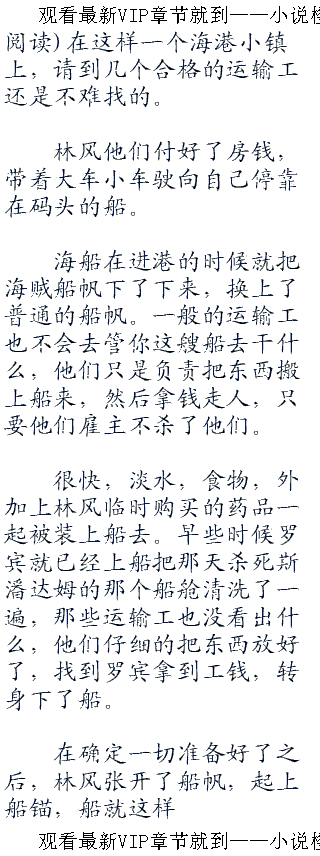 观看最新VIP章节就到——小说
阅读) 在这样一个海港小镇
上，请到几个合格的运输工
还是不难找的。
林风他们付好了房钱，
带着大车小车驶向自己停靠
在码头的船。
海船在进港的时候就把
海贼船帆下了下来，换上了
普通的船帆。一般的运输工
也不会去管你这艘船去干什
么，他们只是负责把东西搬
上船来，然后拿钱走人，只
要他们雇主不杀了他们。
很快，淡水，食物，外
加上林风临时购买的药品一
起被装上船去。早些时候罗
宾就已经上船把那天杀死斯
潘达姆的那个船舱清洗了一
遍，那些运输工也没看出什
么，他们仔细的把东西放好
了，找到罗宾拿到工钱，转
身下了船。
在确定一切准备好了之
后，林风张开了船帆，起上
船锚，船就这样
观看最新VIP章节就到——小说